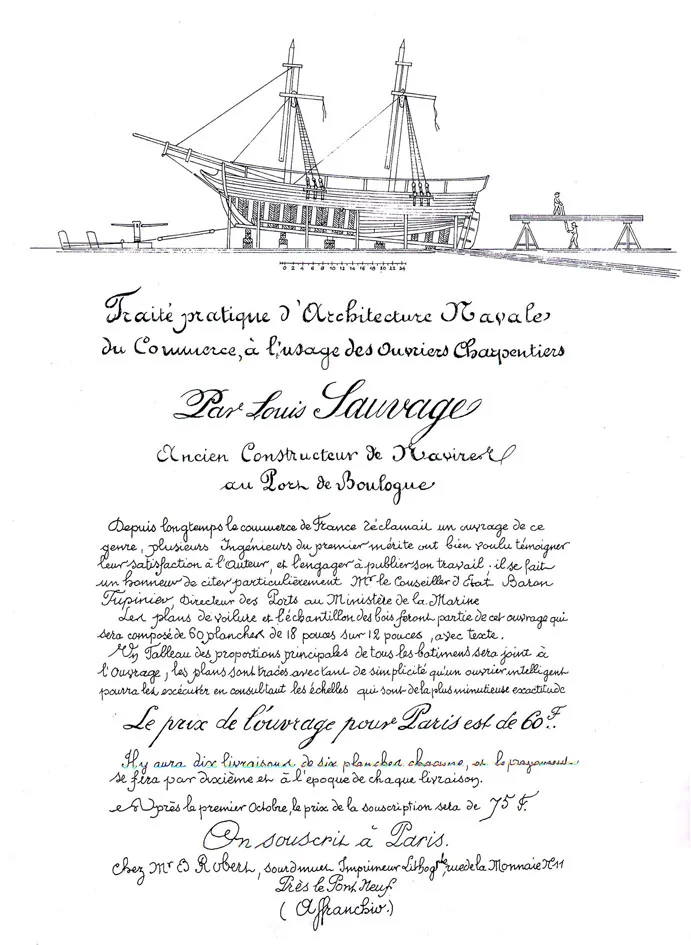 0 2 4 6 8 10 12 14 16 18 20 22 24
Traité pratique d'Architecture Navale
du Commerce, à l'usage des Ouvriers Charpentiers
Par Louis Sauvage
Ancien Constructeur de Navires
au Port de Boulogne
Depuis longtemps le commerce de France réclamait un ouvrage de ce
genre, plusieurs Ingénieurs du premier mérite ont bien voulu témoigner
leur satisfaction à l'Auteur, et l'engager à publier son travail ; il se fait
un honneur de citer particulièrement Mr le Conseiller d'Etat Baron
Tupinier, Directeur des Ports au Ministère de la Marine
Les plans de voilure et l'échantillon des bois feront partie de cet ouvrage qui
sera composé de 60 planches de 18 pouces sur 12 pouces, avec texte.
Un Tableau des proportions principales de tous les batimens sera joint à
l'Ouvrage, les plans sont tracés avec tant de simplicité qu'un ouvrier intelligent
pourra les exécuter en consultant les échelles qui sont de la plus minutieuse exactitude
Le prix de l'ouvrage pour Paris est de 60 F.
Il y aura dix livraisons de six planches chacune, et le payement
se fera par dixième et à l'epoque de chaque livraison.
Après le premier Octobre, le prix de la souscription sera de 75 F.
On souscrit à Paris.
chez Mr B Robert, sourd muet Imprimeur Lithogr., rue de la Monnaie N 11
Près le Pont Neuf
(Affranchir.)